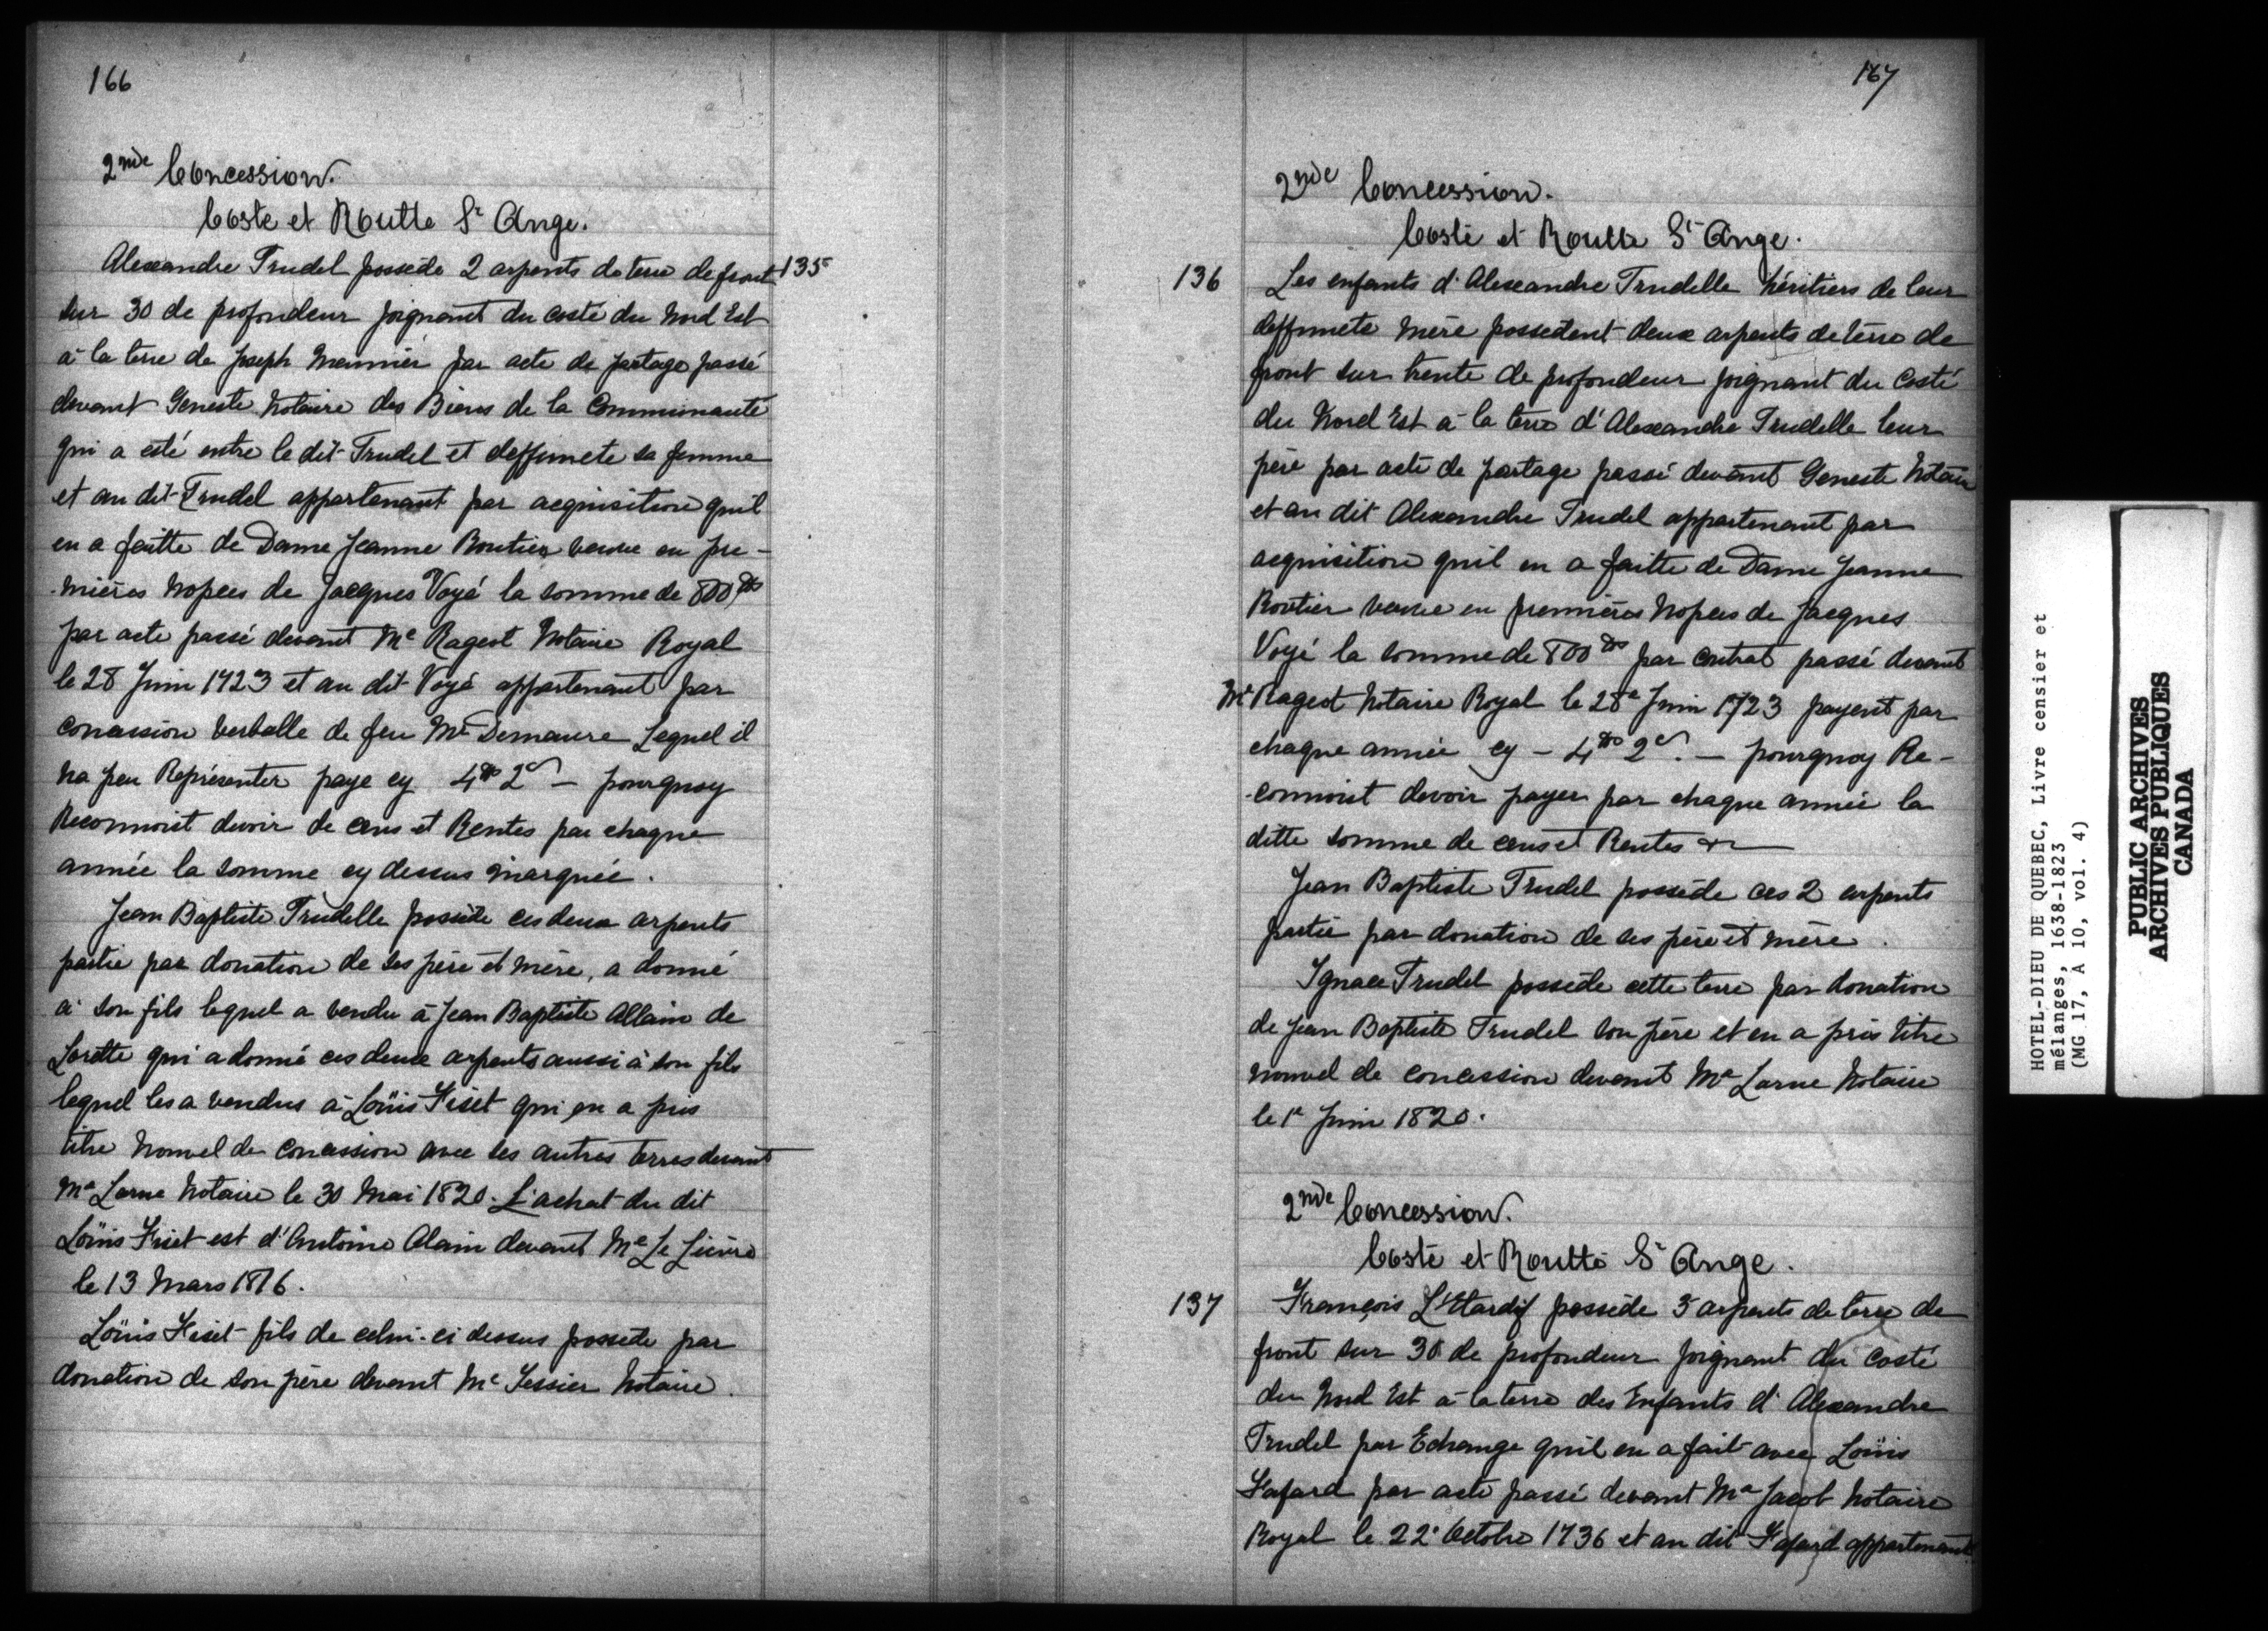 166
2nde Concession.
Coste et Routte St Ange.
135
Alexandre Trudel possede 2 arpents de terre de front
sur 30 de profondeur joignant du costé du Nord Est
à la terre de Joseph Meunier par acte de partage passé
devant Geneste Notaire des Biens de la Communauté
qui a esté entre le dit Trudel et deffuncte sa femme
et au dit Trudel appartenant par acquisition quil
en a faitte de Dame Jeanne Routier veuve en pre-
-mières Nopces de Jacques Voyé la somme de 800 ₶
par acte passé devant Me Rageot Notaire Royal
le 28 Juin 1723 et au dit Voyé appartenant par
concession verballe de feu Mr Demaure Lequel il
na peu Représenter paye cy 4₶ 2s — pourquoy
Reconnoist devoir de cens et Rentes par chaque
année la somme cy dessus marquée.
Jean Baptiste Trudelle possède ces deux arpents
partie par donation de ses père et mère, a donné
à son fils lequel a vendu à Jean Baptiste Allain de
Lorette qui a donné ces deux arpents aussi à son fils
lequel les a vendus à Loüis Fiset qui en a pris
titre Nouvel de concession avec ses autres terres devant
Me Larue Notaire le 30 Mai 1820. L'achat du dit
Loüis Fiset est d'Antoine Alain devant Me Le Lièvre
le 13 Mars 1816.
Loüis Fiset fils de celui-ci dessus possede par
donation de son père devant Me Tessier Notaire.
167
2nde Concession.
Coste et Routte St Ange.
136
Les enfants d'Alexandre Trudelle héritiers de leur
deffuncte mère possedent deux arpents de terre de
front sur trente de profondeur joignant du Costé
du Nord Est à la terre d'Alexandre Trudelle leur
père par acte de partage passé devant Geneste Notaire
et au dit Alexandre Trudel appartenant par
acquisition quil en a faitte de Dame Jeanne
Routier veuve en premières Nopces de Jacques
Voyé la somme de 800 ₶ par contrat passé devant
Me Rageot Notaire Royal le 28e Juin 1723 payent par
chaque année cy — 4₶ 2s. — pourquoy Re-
-connoist devoir payer par chaque année la
ditte somme de cens et Rentes &
Jean Baptiste Trudel possède ces 2 arpents
partie par donation de ses père et mère.
Ignace Trudel possède cette terre par donation
de Jean Baptiste Trudel son père et en a pris titre
nouvel de concession devant Me Larue Notaire
le 1er Juin 1820.
2nde Concession.
Coste et Routte St Ange.
137
François L'Etardif possède 3 arpents de terre de
front sur 30 de profondeur joignant du costé
du Nord Est à la terre des Enfants d'Alexandre
Trudel par Echange quil en a fait avec Loüis
Fafard par acte passé devant Me Jacob Notaire
Royal le 22e Octobre 1736 et au dit Fafard appartenant
HOTEL-DIEU DE QUEBEC, Livre censier et
mélanges, 1638-1823
(MG 17, A 10, vol. 4)
PUBLIC ARCHIVES
ARCHIVES PUBLIQUES
CANADA